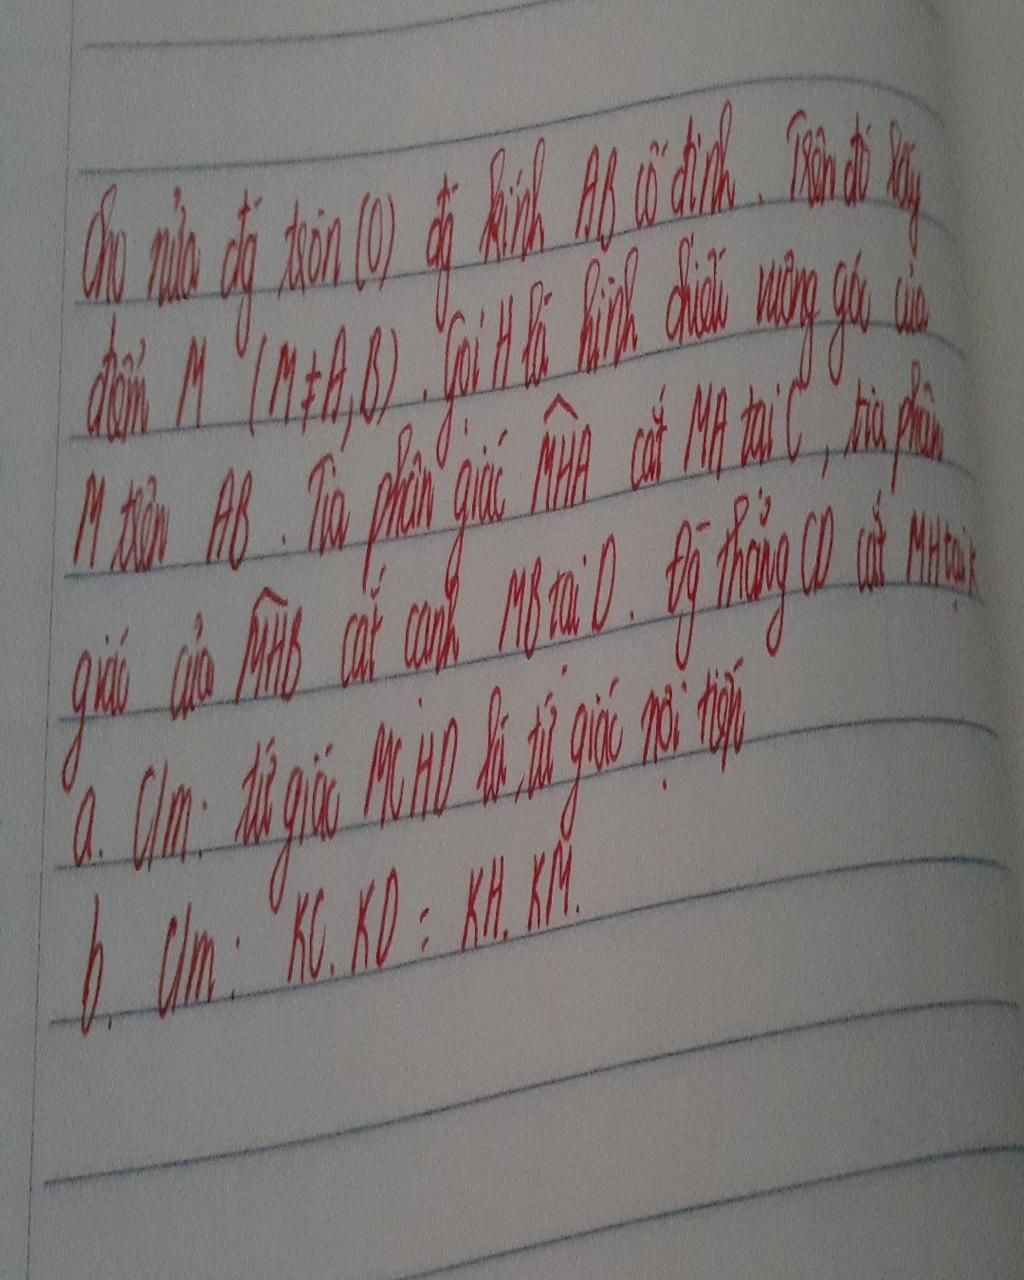 Cho nửa đg̃ tròn (O) đg̃ kính AB cố định. Trên đó lấy
điểm M (M ≠ A, B). Gọi H là hình chiếu vuông góc của
M trên AB. Tia phân giác MHA cắt MA tại C, tia phân
giác của MHB cắt cạnh MB tại D. Đg̃ thẳng CD cắt MH tại K
a. C/m: tứ giác MCHD là tứ giác nội tiếp
b. C/m: KC. KD = KH. KM.